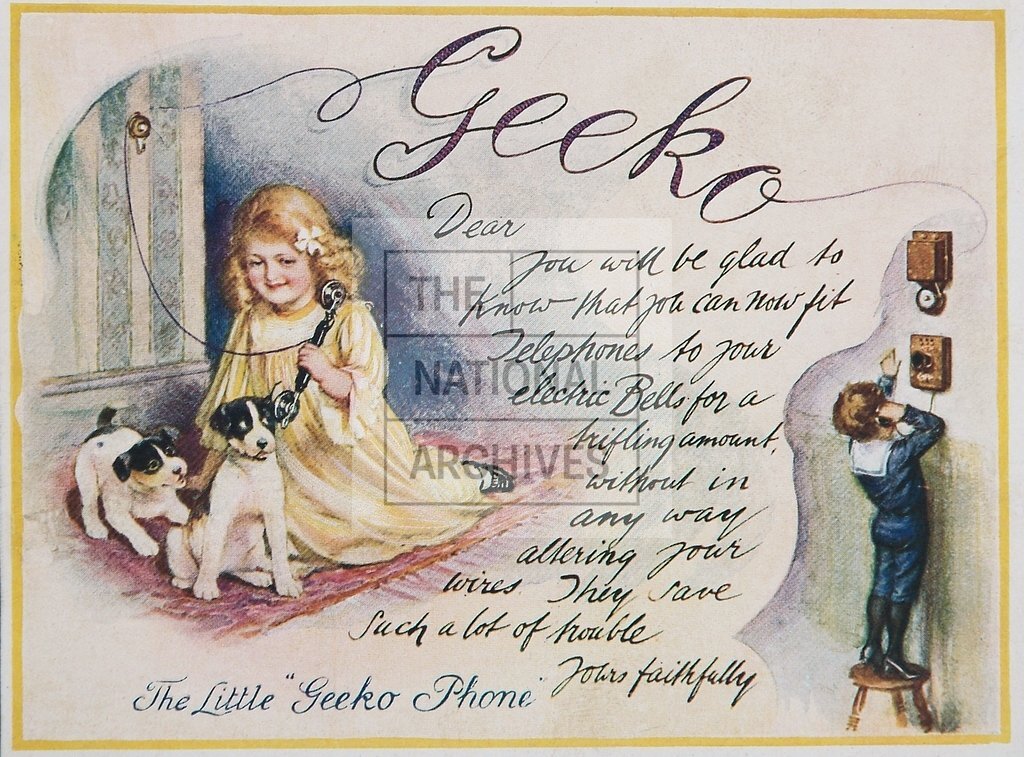 Geeko
Dear
you will be glad to
know that you can now fit
Telephones to your
electric Bells for a
trifling amount,
without in
any way
altering your
wires. They save
such a lot of trouble
Yours faithfully
The Little "Geeko Phone"
THE
NATIONAL
ARCHIVES